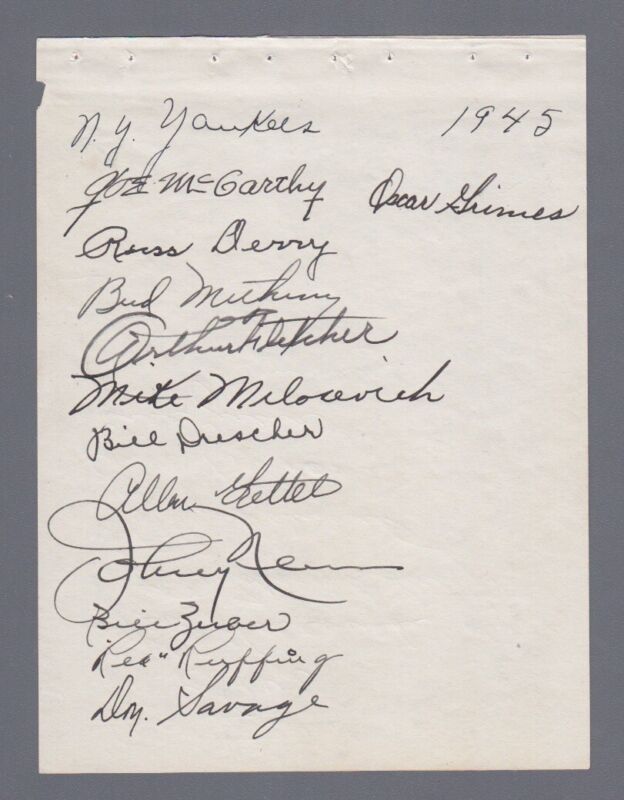 N.Y. Yankees 1945
Joe McCarthy Oscar Grimes
Russ Derry
Bud Metheny
Arthur Fletcher
Mike Milosevich
Bill Drescher
Allen Gettel
Johnny
Bill Zuber
"Red" Ruffing
Don Savage